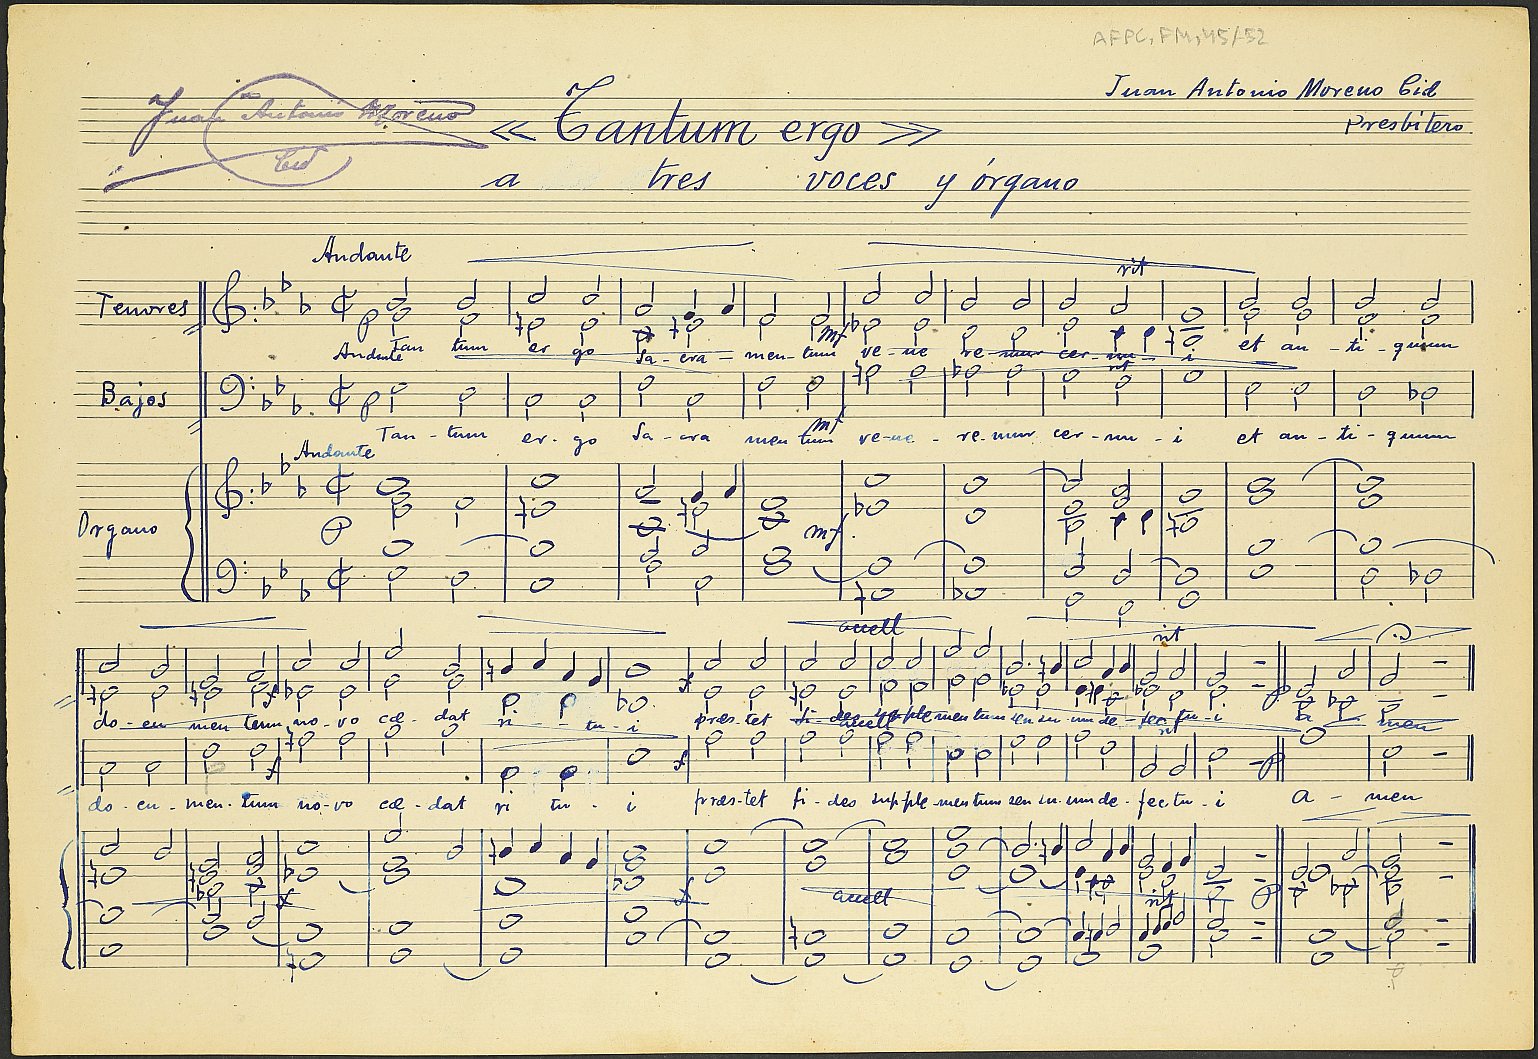 AFPC, FM, 45/52
Juan Antonio Moreno Cid
Presbítero.
Juan Antonio Moreno
Cid
« Tantum ergo »
a tres voces y órgano
Andante
rit
Tenores
p
mf
Tan tum er go Sa-cra-men-tum ve-ne re-mur cer-nu-i et an-ti-quum
Andante
rit
Bajos
p
mf
Tan-tum er-go Sa-cra men tum ve-ne-re-mur cer-nu-i et an-ti-quum
Andante
Organo
p
mf.
accell
rit
f
f
p
do-cu men tum no-vo cæ-dat ri-tu-i præs-tet fi-des supple mentum sen su-um de-fec tu-i a men
accell
rit
f
f
p
do-cu-men-tum no-vo cæ-dat ri tu-i præs-tet fi-des supple mentum sen su-um de-fec tu-i a-men
f
f
accell
rit
p